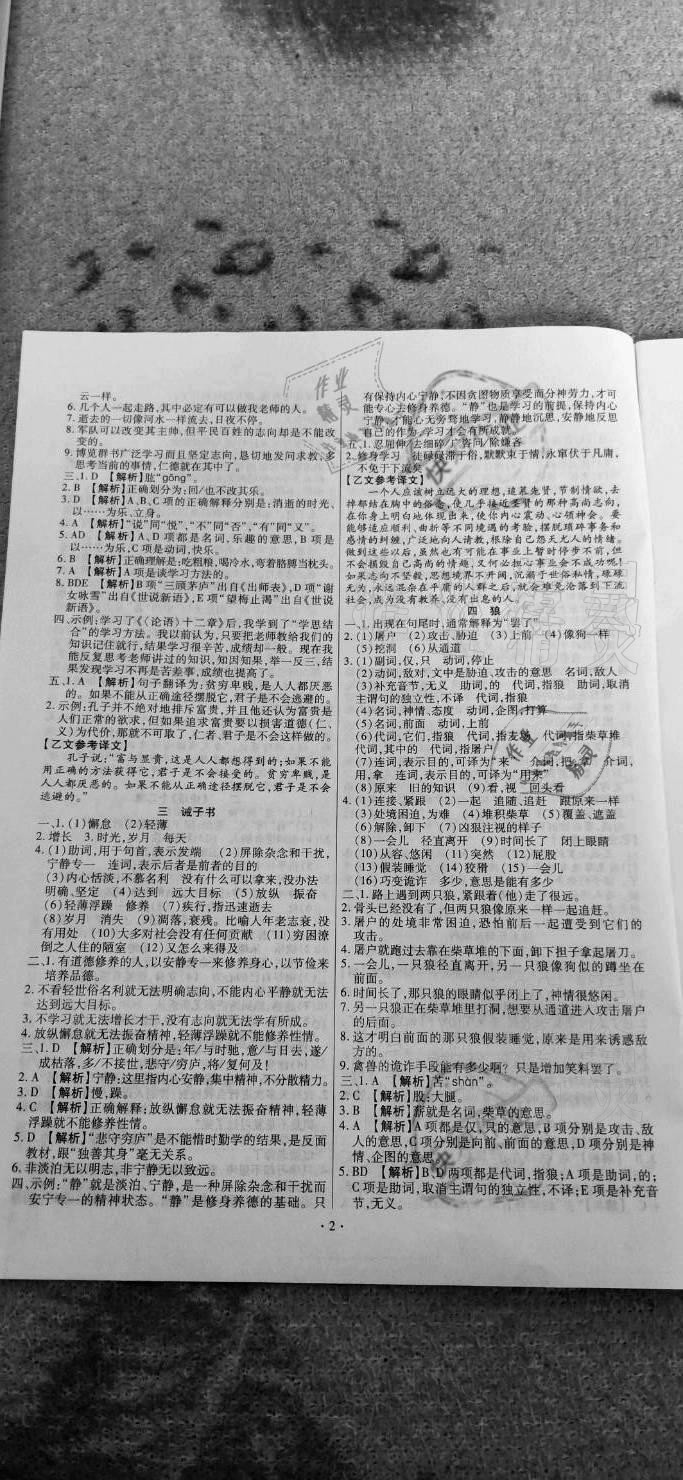 云一样。
6. 几个人一起走路,其中必定有可以做我老师的人。
7. 逝去的一切像河水一样流去,日夜不停。
8. 军队可以改变其主帅,但平民百姓的志向却是不能改
变的。
9. 博览群书广泛学习而且坚定志向,恳切地发问求教,多
思考当前的事情,仁德就在其中了。
三、1. D 【解析】肱“gōng”。
2. B 【解析】正确划分为:回/也不改其乐。
3. D 【解析】A、B、C项的正确解释分别是:消逝的时光、
以……为乐、立身。
4. A 【解析】“说”同“悦”,“不”同“否”,“有”同“又”。
5. AD 【解析】A、D项都是名词,乐趣的意思,B项是
以……为乐,C项是动词,快乐。
6. B 【解析】正确理解是:吃粗粮,喝冷水,弯着胳膊当枕头。
7. A 【解析】A项是谈学习方法的。
8. BDE 【解析】B项“三顾茅庐”出自《出师表》,D项“谢
女咏雪”出自《世说新语》,E项“望梅止渴”出自《世说
新语》。
四、示例:学习了《〈论语〉十二章》后,我学到了“学思结
合”的学习方法。我以前认为,只要把老师教给我们的
知识记住就行,结果学习很辛苦,成绩却一般。现在我
能反复思考老师讲过的知识,知因知果,举一反三,结
果发现学习不再是苦差事,成绩也提高了。
五、1. A 【解析】句子翻译为:贫穷卑贱,是人人都厌恶
的。如果不能从正确途径摆脱它,君子是不会逃避的。
2. 示例:孔子并不绝对地排斥富贵,并且他还认为富贵是
人们正常的欲求,但如果追求富贵要以损害道德(仁、
义)为代价,那就不可取了,仁者、君子是不会这样做的。
【乙文参考译文】
孔子说:“富与显贵,这是人人都想得到的;如果不能
用正确的方法获得它,君子是不会接受的。贫穷卑贱,是
人人都厌恶的。如果不能从正确途径摆脱它,君子是不会
逃避的。”
三 诫子书
一、1. (1)懈怠 (2)轻薄
2. 增长 3. 时光,岁月 每天
4. (1)助词,用于句首,表示发端 (2)屏除杂念和干扰,
宁静专一 连词,表示后者是前者的目的
(3)内心恬淡,不慕名利 没有什么可以拿来,没办法
明确、坚定 (4)达到 远大目标 (5)放纵 振奋
(6)轻薄浮躁 修养 (7)疾行,指迅速逝去
(8)岁月 消失 (9)凋落,衰残。比喻人年老志衰,没
有用处 (10)大多对社会没有任何贡献 (11)穷困潦
倒之人住的陋室 (12)又怎么来得及
二、1. 有道德修养的人,以安静专一来修养身心,以节俭来
培养品德。
2. 不看轻世俗名利就无法明确志向,不能内心平静就无法
达到远大目标。
3. 不学习就无法增长才干,没有志向就无法学有所成。
4. 放纵懈怠就无法振奋精神,轻薄浮躁就不能修养性情。
三、1. D 【解析】正确划分是:年/与时驰,意/与日去,遂/
成枯落,多/不接世,悲守/穷庐,将/复何及!
2. A 【解析】宁静:这里指内心安静,集中精神,不分散精力。
3. D 【解析】慢,躁。
4. C 【解析】正确解释:放纵懈怠就无法振奋精神,轻薄
浮躁就不能修养性情。
5. D 【解析】“悲守穷庐”是不能惜时勤学的结果,是反面
教材,跟“独善其身”毫无关系。
6. 非淡泊无以明志,非宁静无以致远。
四、示例:“静”就是淡泊、宁静,是一种屏除杂念和干扰而
安宁专一的精神状态。“静”是修身养德的基础。只
有保持内心宁静,不因贪图物质享受而分神劳力,才可
能专心去修身养德。“静”也是学习的前提,保持内心
宁静,才能心无旁骛地学习,静静地沉思,安静地反思
自己的作为,学习才会有所成就。
五、1. 忍屈伸/去细碎/广咨问/除嫌吝
2. 修身学习 徒碌碌滞于俗,默默束于情,永窜伏于凡庸,
不免于下流矣
【乙文参考译文】
一个人应该树立远大的理想,追慕先贤,节制情欲,去
掉郁结在胸中的俗念,使几乎接近圣贤的那种高尚志向,
在你身上明白地体现出来,使你内心震动、心领神会。要
能够适应顺利、曲折等不同境遇的考验,摆脱琐碎事务和
感情的纠缠,广泛地向人请教,根除自己怨天尤人的情绪。
做到这些以后,虽然也有可能在事业上暂时停步不前,但
不会损毁自己高尚的情趣,又何必担心事业会不成功呢!
如果志向不坚毅,思想境界不开阔,沉溺于世俗私情,碌碌
无为,永远混杂在平庸的人群之后,就会难免沦落到下流
社会,成为没有教养、没有出息的人。
四 狼
一、1. 出现在句尾时,通常解释为“罢了”
2. (1)屠户 (2)攻击、胁迫 (3)上前 (4)像狗一样
(5)挖洞 (6)从通道
3. (1)副词,仅,只 动词,停止
(2)动词,敌对,文中是胁迫、攻击的意思 名词,敌人
(3)补充音节,无义 助词,的 代词,指狼 助词,取消
主谓句的独立性,不译 代词,指狼
(4)名词,神情、态度 动词,企图,打算
(5)名词,前面 动词,上前
(6)代词,它们,指狼 代词,指麦场 代词,指柴草堆
代词,其中的 代词,指屠户
(7)连词,表示目的,可译为“来” 介词,把,拿 介词,
用,拿 连词,表示目的,可译为“用来”
(8)原来 旧的知识 (9)看,视 回头看
4. (1)连接、紧跟 (2)一起 追随、追赶 跟原来一样
(3)处境困迫,为难 (4)堆积柴草 (5)覆盖、遮盖
(6)解除,卸下 (7)凶狠注视的样子
(8)一会儿 径直离开 (9)时间长了 闭上眼睛
(10)从容、悠闲 (11)突然 (12)屁股
(13)假装睡觉 (14)狡猾 (15)一会儿
(16)巧变诡诈 多少,意思是能有多少
二、1. 路上遇到两只狼,紧跟着(他)走了很远。
2. 骨头已经没有了,但两只狼像原来一样一起追赶。
3. 屠户的处境非常困迫,恐怕前后一起遭受到它们的
攻击。
4. 屠户就跑过去靠在柴草堆的下面,卸下担子拿起屠刀。
5. 一会儿,一只狼径直离开,另一只狼像狗似的蹲坐在
前面。
6. 时间长了,那只狼的眼睛似乎闭上了,神情很悠闲。
7. 另一只狼正在柴草堆里打洞,想要从通道进入攻击屠户
的后面。
8. 这才明白前面的那只狼假装睡觉,原来是用来诱惑敌
方的。
9. 禽兽的诡诈手段能有多少啊?只是增加笑料罢了。
三、1. A 【解析】苫“shàn”。
2. C 【解析】股:大腿。
3. B 【解析】薪就是名词,柴草的意思。
4. A 【解析】A项都是仅、只的意思,B项分别是攻击、敌
人的意思,C项分别是向前、前面的意思,D项分别是神
情、企图的意思。
5. BD 【解析】B、D两项都是代词,指狼;A项是助词,的;
C项是助词,取消主谓句的独立性,不译;E项是补充音
节,无义。
· 2 ·
作业
精灵
作业
精灵
快